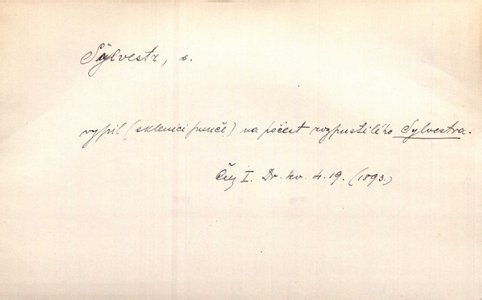 Sylvestr, s.
vypil (sklenici punče) na počest rozpustilého Sylvestra.
I. Dr. kv. 4. 19. (1893.)